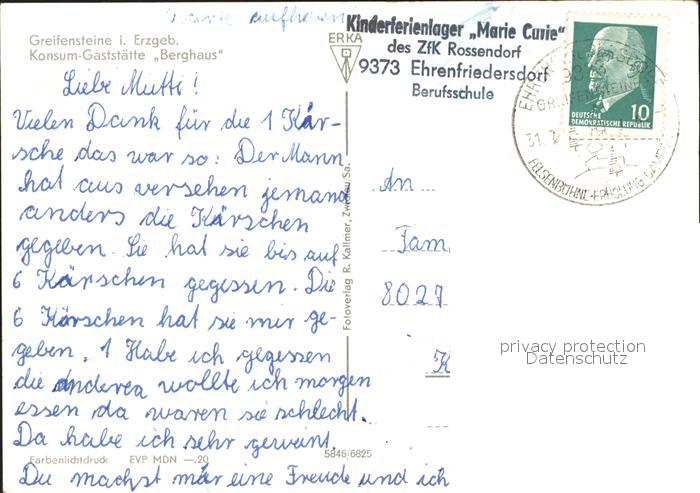 Karte aufheben
Greifensteine i. Erzgeb.
Konsum-Gaststätte „Berghaus"
ERKA
Kinderferienlager „Marie Curie"
des ZfK Rossendorf
9373 Ehrenfriedersdorf
Berufsschule
DEUTSCHE
DEMOKRATISCHE REPUBLIK
10
GREIFENSTEINE
FELSENBÜHNE-ERHOLUNG-CAMPING
31.7
Liebe Mutti!
Vielen Dank für die 1 Kär-
sche das war so: Der Mann
hat aus versehen jemand
anders die Kärschen
gegeben. Sie hat sie bis auf
6 Kärschen gegessen. Die
6 Kärschen hat sie mir ge-
geben. 1 Habe ich gegessen
die anderen wollte ich morgen
essen da waren sie schlecht.
Da habe ich sehr geweint.
Du machst mir eine Freude und ich
Farbenlichtdruck EVP MDN —.20
5846/6825
Fotoverlag R. Kallmer, Zwickau/Sa.
An
Fam.
8027
K
privacy protection
Datenschutz